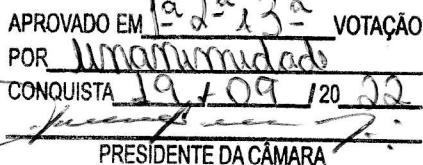 APROVADO EM 1ª 2ª e 3ª VOTAÇÃO
POR unanimidade
CONQUISTA 19 / 09 / 20 22
PRESIDENTE DA CÂMARA